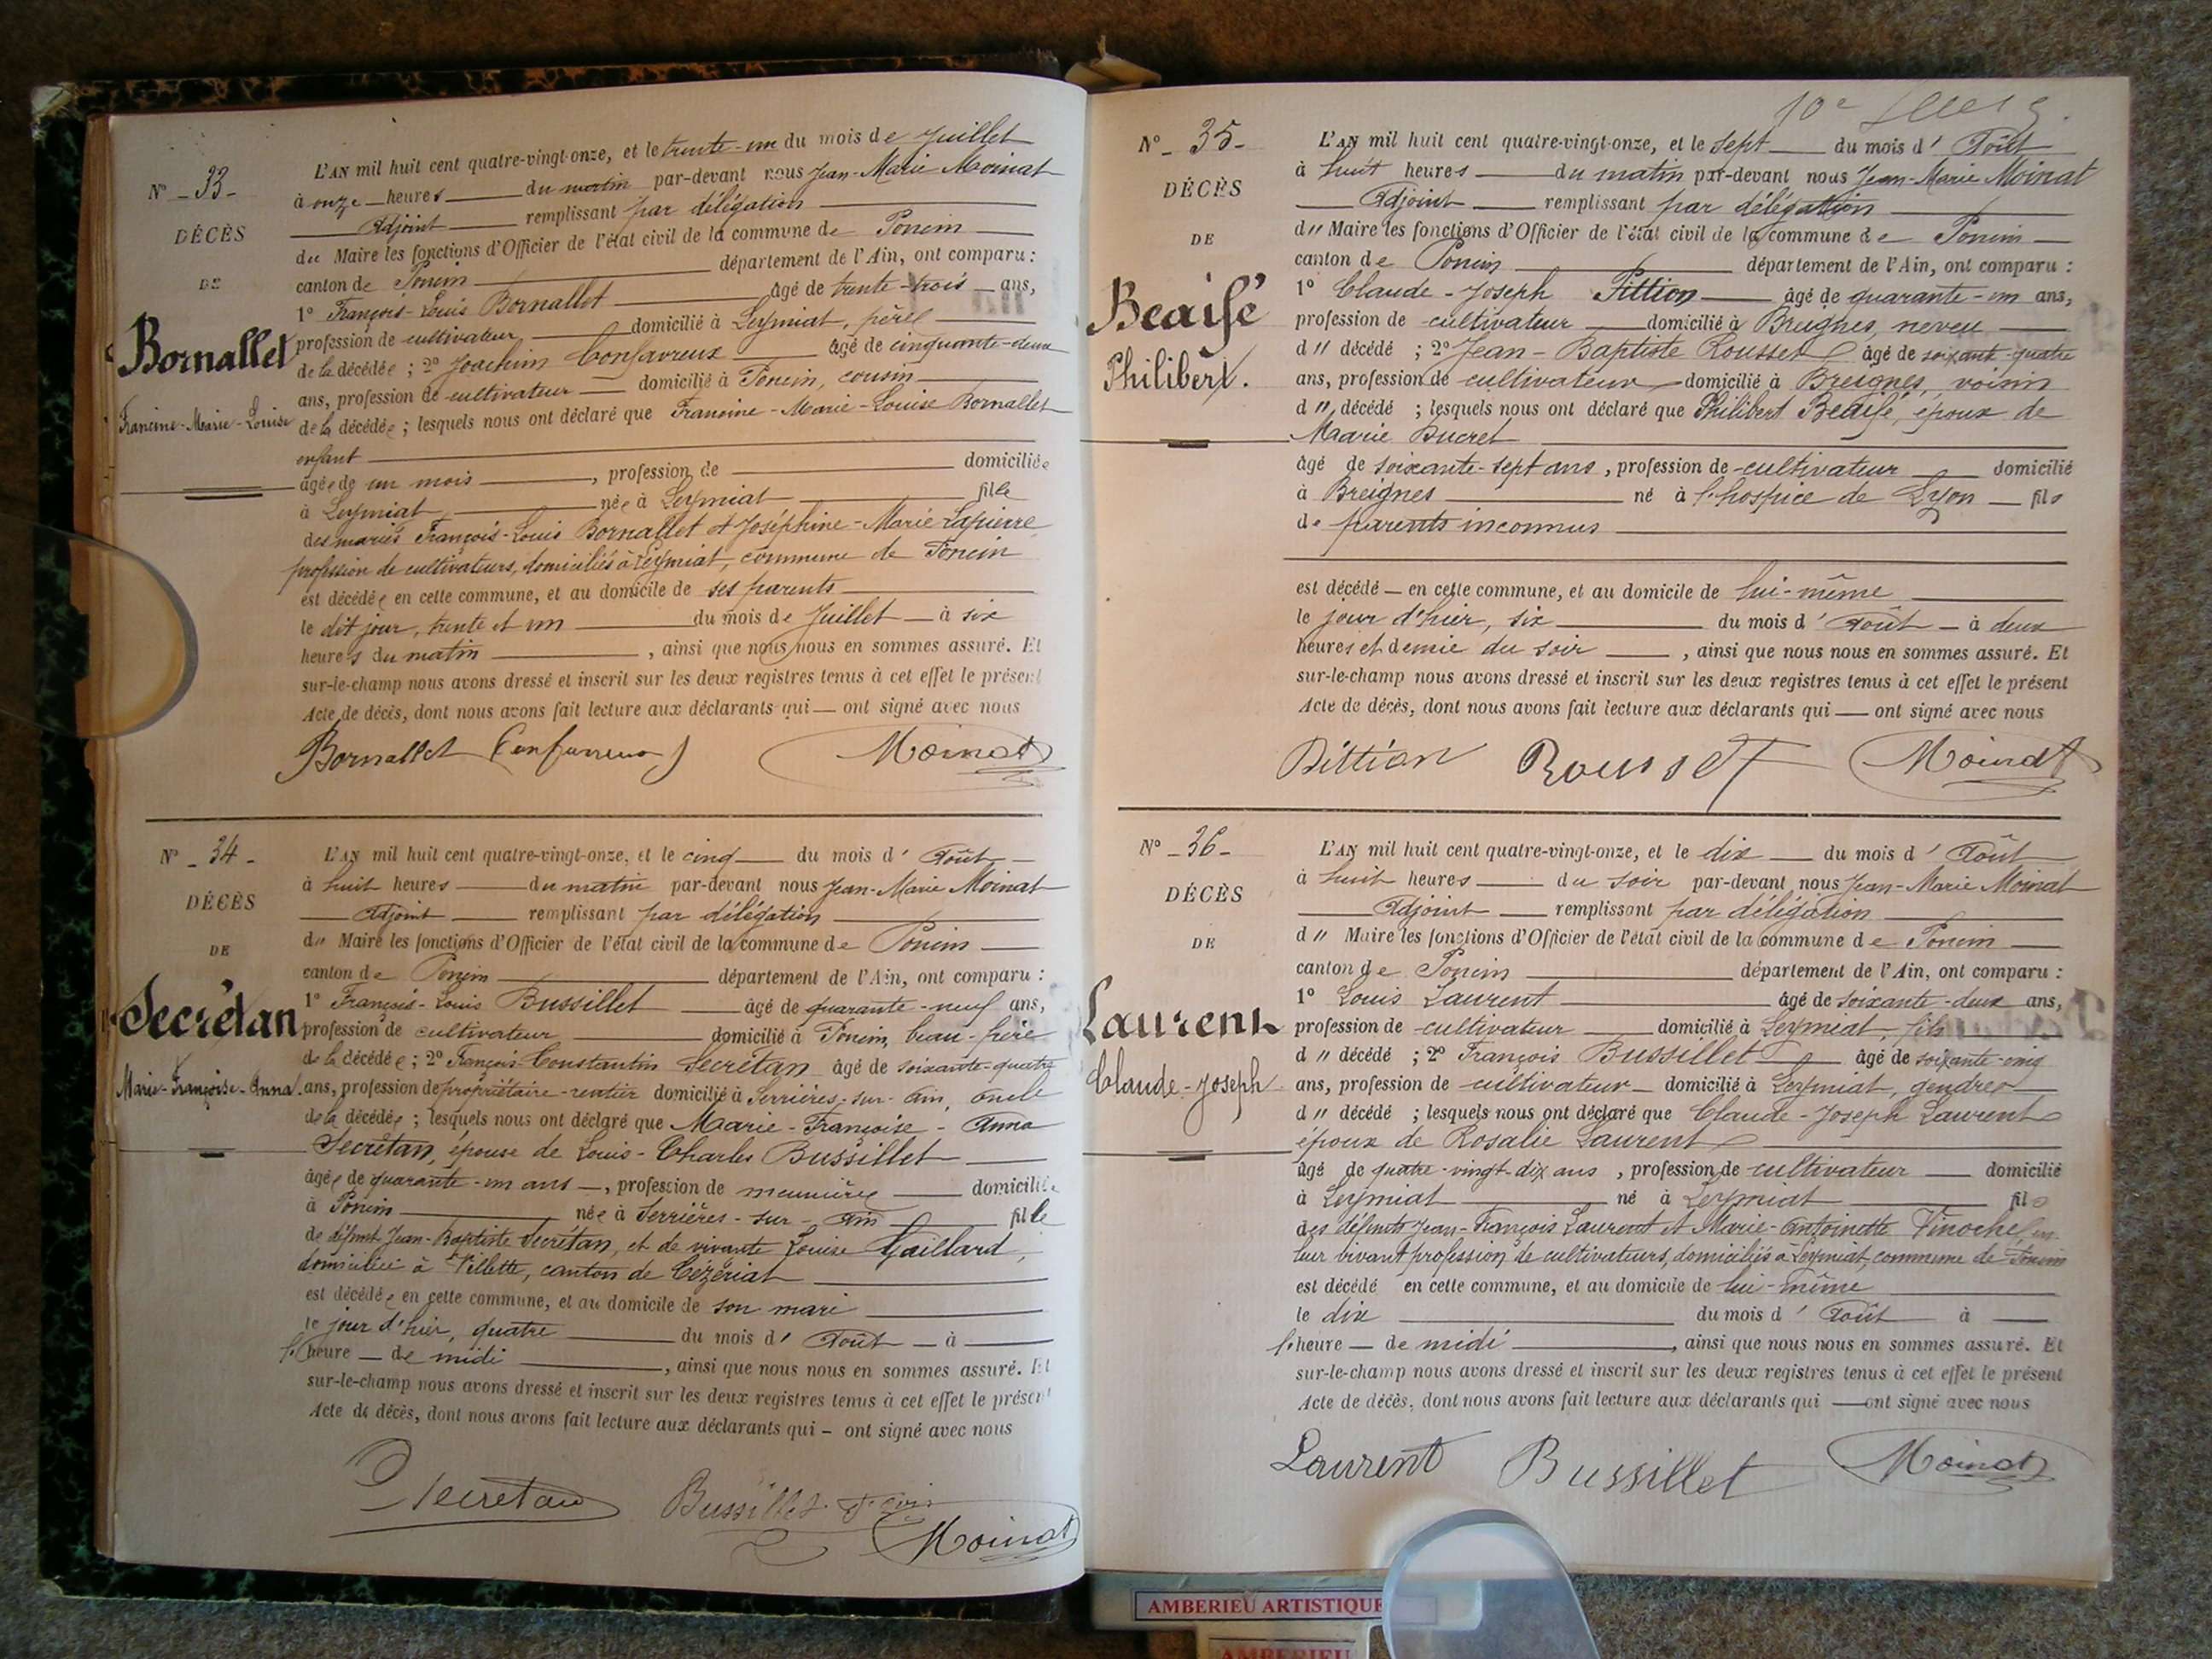 N° - 33 -
DÉCÈS
DE
Bornallet
Francine-Marie-Louise
L'AN mil huit cent quatre-vingt-onze, et le trente-un du mois de Juillet
à onze heures du matin par-devant nous Jean-Marie Moinat
Adjoint remplissant par délégation
du Maire les fonctions d'Officier de l'état civil de la commune de Poncin
canton de Poncin département de l'Ain, ont comparu :
1° François-Louis Bornallet âgé de trente-trois ans,
profession de cultivateur domicilié à Leymiat, père
de la décédée ; 2° Joachim Confavreux âgé de cinquante-deux
ans, profession de cultivateur domicilié à Poncin, cousin
de la décédée ; lesquels nous ont déclaré que Francine-Marie-Louise Bornallet
enfant
âgée de un mois , profession de domiciliée
à Leymiat née à Leymiat fille
des mariés François-Louis Bornallet et Joséphine-Marie Lapierre
profession de cultivateurs, domiciliés à Leymiat, commune de Poncin
est décédée en cette commune, et au domicile de ses parents
le dit jour, trente et un du mois de Juillet à six
heures du matin , ainsi que nous nous en sommes assuré. Et
sur-le-champ nous avons dressé et inscrit sur les deux registres tenus à cet effet le présent
Acte de décès, dont nous avons fait lecture aux déclarants qui ont signé avec nous
Bornallet Confavreux Moinat
N° - 34 -
DÉCÈS
DE
Secrétan
Marie-Françoise-Anna.
L'AN mil huit cent quatre-vingt-onze, et le cinq du mois d' Août
à huit heures du matin par-devant nous Jean-Marie Moinat
Adjoint remplissant par délégation
d" Maire les fonctions d'Officier de l'état civil de la commune de Poncin
canton de Poncin département de l'Ain, ont comparu :
1° François-Louis Bussillet âgé de quarante-neuf ans,
profession de cultivateur domicilié à Poncin, beau-frère
de la décédée ; 2° François-Constantin Secrétan âgé de soixante-quatre
ans, profession de propriétaire-rentier domicilié à Serrières-sur-Ain, oncle
de la décédée ; lesquels nous ont déclaré que Marie-Françoise-Anna
Secrétan, épouse de Louis-Charles Bussillet
âgée de quarante-un ans , profession de meunière domiciliée
à Poncin née à Serrières-sur-Ain fille
de défunt Jean-Baptiste Secrétan, et de vivante Louise Gaillard,
domiciliée à Villette, canton de Cézériat
est décédée en cette commune, et au domicile de son mari
le jour d'hier, quatre du mois d' Août à
l'heure de midi , ainsi que nous nous en sommes assuré. Et
sur-le-champ nous avons dressé et inscrit sur les deux registres tenus à cet effet le présent
Acte de décès, dont nous avons fait lecture aux déclarants qui ont signé avec nous
Secretan Bussillet
Moinat
10e
N° - 35 -
DÉCÈS
DE
Beaisé
Philibert.
L'AN mil huit cent quatre-vingt-onze, et le sept du mois d' Août
à huit heures du matin par-devant nous Jean-Marie Moinat
Adjoint remplissant par délégation
d" Maire les fonctions d'Officier de l'état civil de la commune de Poncin
canton de Poncin département de l'Ain, ont comparu :
1° Claude-Joseph Pittion âgé de quarante-un ans,
profession de cultivateur domicilié à Breignes, neveu
d" décédé ; 2° Jean-Baptiste Rousset âgé de soixante-quatre
ans, profession de cultivateur domicilié à Breignes, voisin
d" décédé ; lesquels nous ont déclaré que Philibert Beaisé, époux de
Marie Ducret
âgé de soixante-sept ans, profession de cultivateur domicilié
à Breignes né à l'hospice de Lyon fils
de parents inconnus
est décédé en cette commune, et au domicile de lui-même
le jour d'hier, six du mois d' Août à deux
heures et demie du soir , ainsi que nous nous en sommes assuré. Et
sur-le-champ nous avons dressé et inscrit sur les deux registres tenus à cet effet le présent
Acte de décès, dont nous avons fait lecture aux déclarants qui ont signé avec nous
Pittion Rousset Moinat
N° - 36 -
DÉCÈS
DE
Laurent
Claude-Joseph
L'AN mil huit cent quatre-vingt-onze, et le dix du mois d' Août
à huit heures du soir par-devant nous Jean-Marie Moinat
Adjoint remplissant par délégation
d" Maire les fonctions d'Officier de l'état civil de la commune de Poncin
canton de Poncin département de l'Ain, ont comparu :
1° Louis Laurent âgé de soixante-deux ans,
profession de cultivateur domicilié à Leymiat, fils
d" décédé ; 2° François Bussillet âgé de soixante-cinq
ans, profession de cultivateur domicilié à Leymiat, gendre
d" décédé ; lesquels nous ont déclaré que Claude-Joseph Laurent
époux de Rosalie Laurent
âgé de quatre-vingt-dix ans , profession de cultivateur domicilié
à Leymiat né à Leymiat fils
des défunts Jean-François Laurent et Marie-Antoinette Vinoche, en
leur vivant profession de cultivateurs, domiciliés à Leymiat, commune de Poncin
est décédé en cette commune, et au domicile de lui-même
le dix du mois d' Août à
l'heure de midi , ainsi que nous nous en sommes assuré. Et
sur-le-champ nous avons dressé et inscrit sur les deux registres tenus à cet effet le présent
Acte de décès, dont nous avons fait lecture aux déclarants qui ont signé avec nous
Laurent Bussillet Moinat
AMBERIEU ARTISTIQUE
AMBERIEU